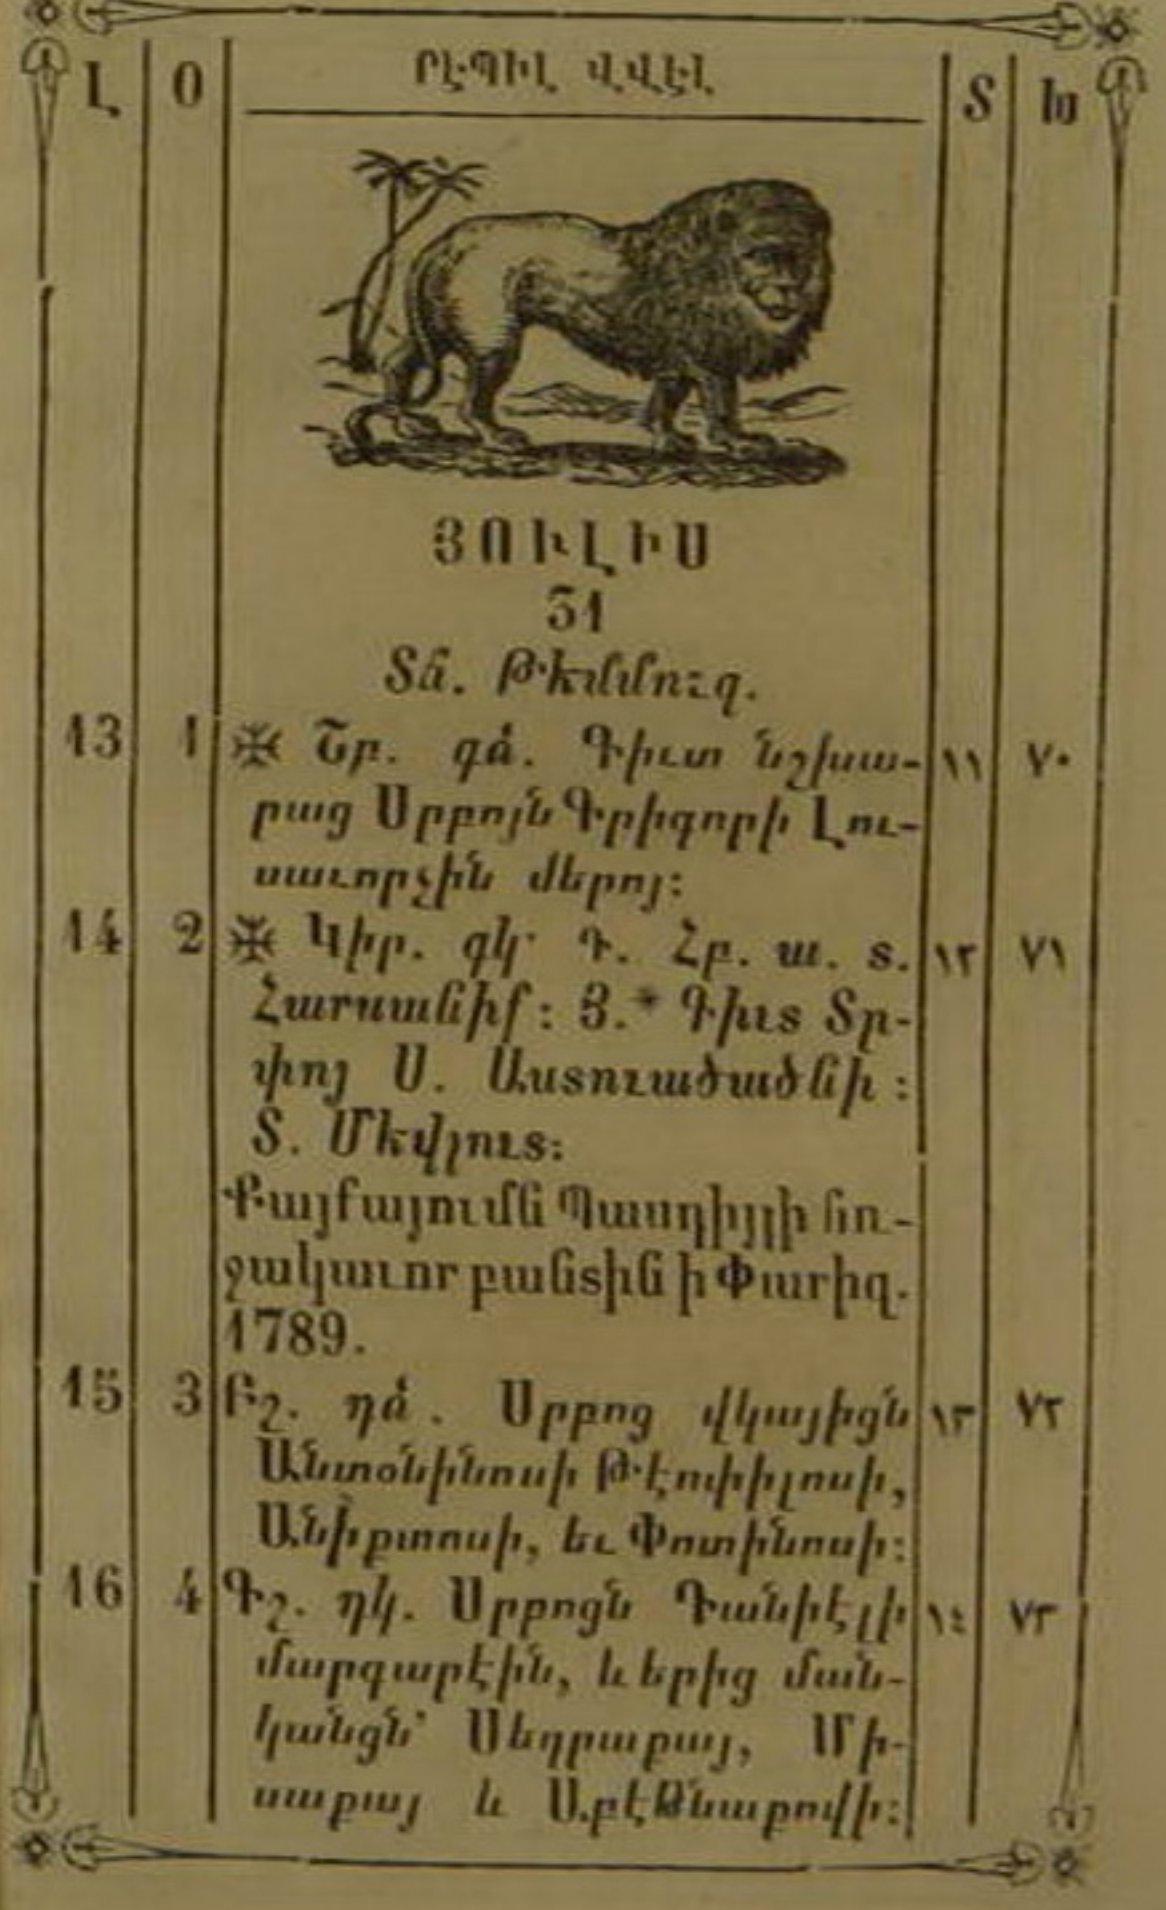 Լ Օ ՐԷՊԻԼ ՎՎԷԼ Տ Խ
ՅՈՒԼԻՍ
31
Տճ. Թեմմուզ.
13 1 ✠ Շբ. գձ. Գիւտ նշխա- ١١ ٧٠
րաց Սրբոյն Գրիգորի Լու-
սաւորչին մերոյ:
14 2 ✠ Կիր. գկ Դ. Հբ. ա. տ. ١٢ ٧١
Հարսանիք: Յ.* Գիւտ Տր-
փոյ Ս. Աստուածածնի:
Տ. Մեվլուտ:
Քայքայումն Պասդիյլի հռ-
չակաւոր բանտին ի Փարիզ.
1789.
15 3 Բշ. դձ. Սրբոց վկայիցն ١٣ ٧٢
Անտօնինոսի Թէոփիլոսի,
Անիքտոսի, եւ Փոտինոսի:
16 4 Գշ. դկ. Սրբոցն Դանիէլի ١٤ ٧٣
մարգարէին, և երից ման-
կանցն՝ Սեդրաքայ, Մի-
սաքայ և Աբէթնաքովի: